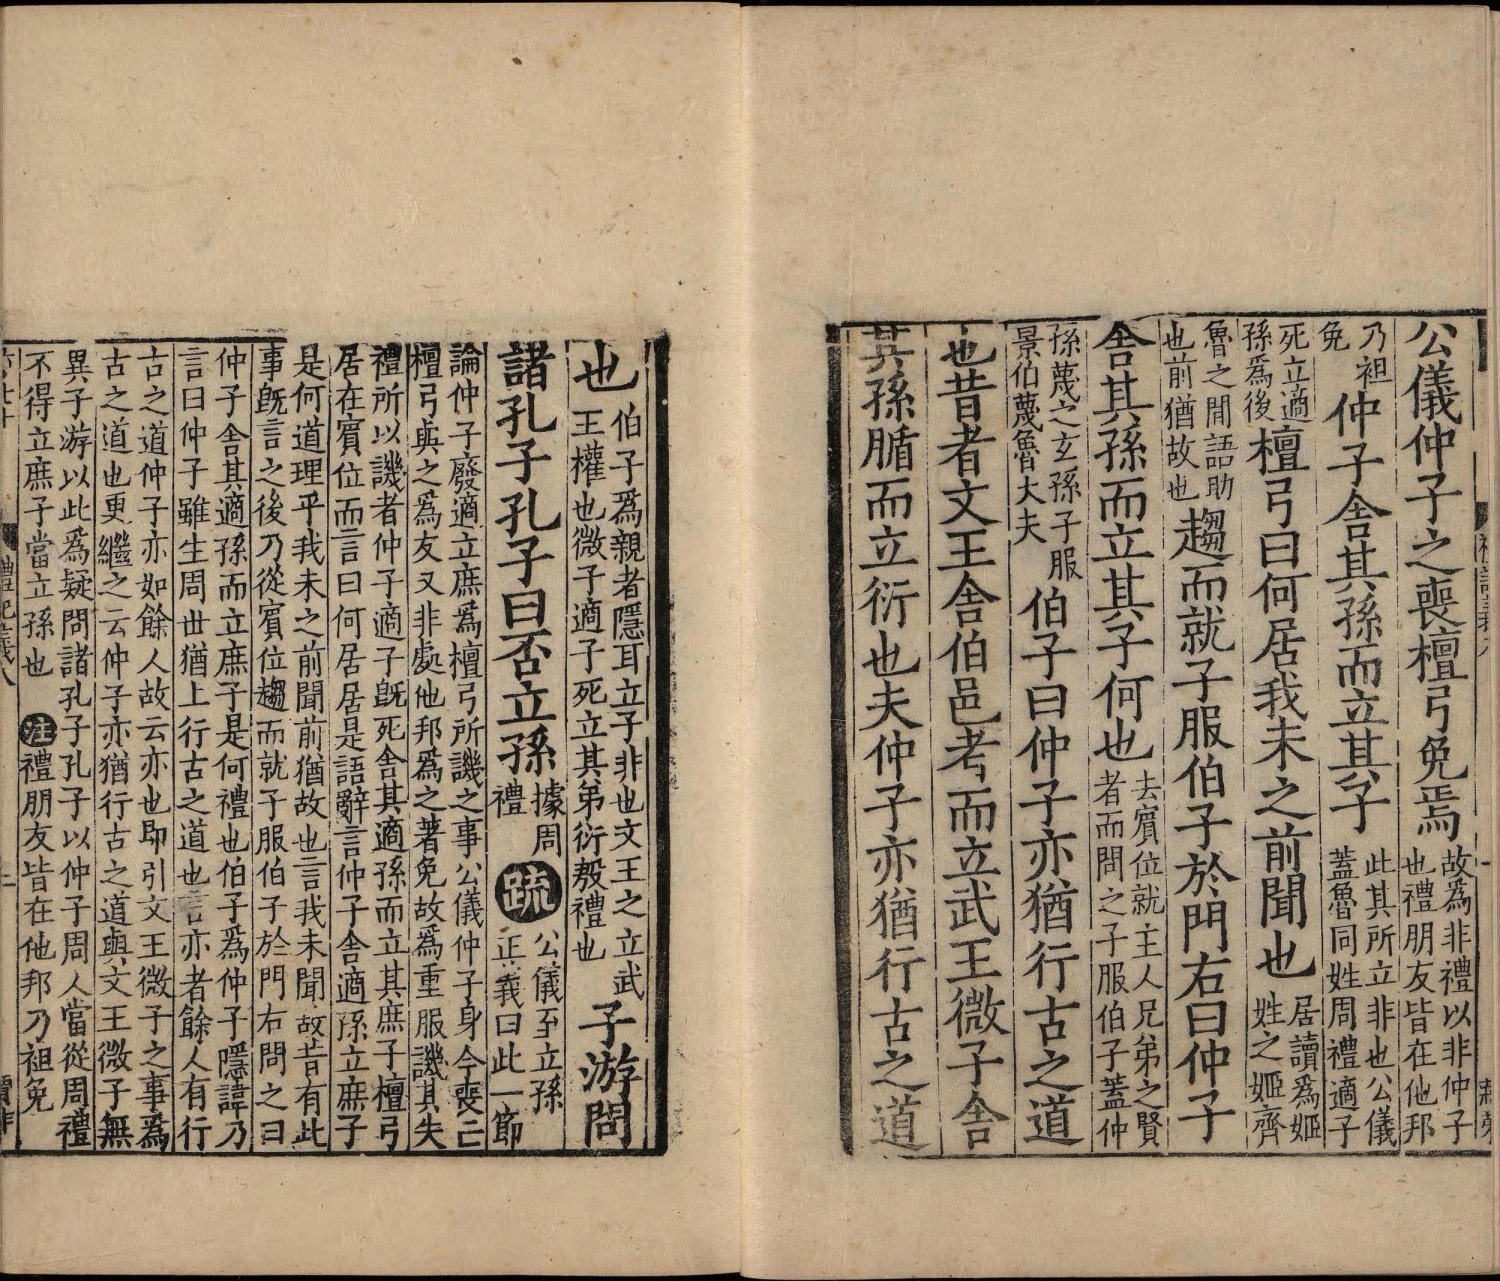 公儀仲子之喪檀弓免焉故爲非禮以非仲子
也禮朋友皆在他邦
乃袒
免仲子舍其孫而立其子此其所立非也公儀
蓋魯同姓周禮適子
死立適
孫爲後檀弓曰何居我未之前聞也居讀爲姬
姓之姬齊
魯之間語助
也前猶故也趨而就子服伯子於門右曰仲子
舍其孫而立其子何也去賓位就主人兄弟之賢
者而問之子服伯子蓋仲
孫蔑之玄孫子服
景伯蔑魯大夫伯子曰仲子亦猶行古之道
也昔者文王舍伯邑考而立武王微子舍
其孫腯而立衍也夫仲子亦猶行古之道
也伯子爲親者隱耳立子非也文王之立武
王權也微子適子死立其弟衍殷禮也子游問
諸孔子孔子曰否立孫據周
禮疏公儀至立孫
正義曰此一節
論仲子廢適立庶爲檀弓所譏之事公儀仲子身今喪亡
檀弓與之爲友又非處他邦爲之著免故爲重服譏其失
禮所以譏者仲子適子旣死舍其適孫而立其庶子檀弓
居在賓位而言曰何居居是語辭言仲子舍適孫立庶子
是何道理乎我未之前聞前猶故也言我未聞故昔有此
事旣言之後乃從賓位趨而就子服伯子於門右問之曰
仲子舍其適孫而立庶子是何禮也伯子爲仲子隱諱乃
言曰仲子雖生周世猶上行古之道也言亦者餘人有行
古之道仲子亦如餘人故云亦也即引文王微子之事爲
古之道也更繼之云仲子亦猶行古之道與文王微子無
異子游以此爲疑問諸孔子孔子以仲子周人當從周禮
不得立庶子當立孫也注禮朋友皆在他邦乃袒免